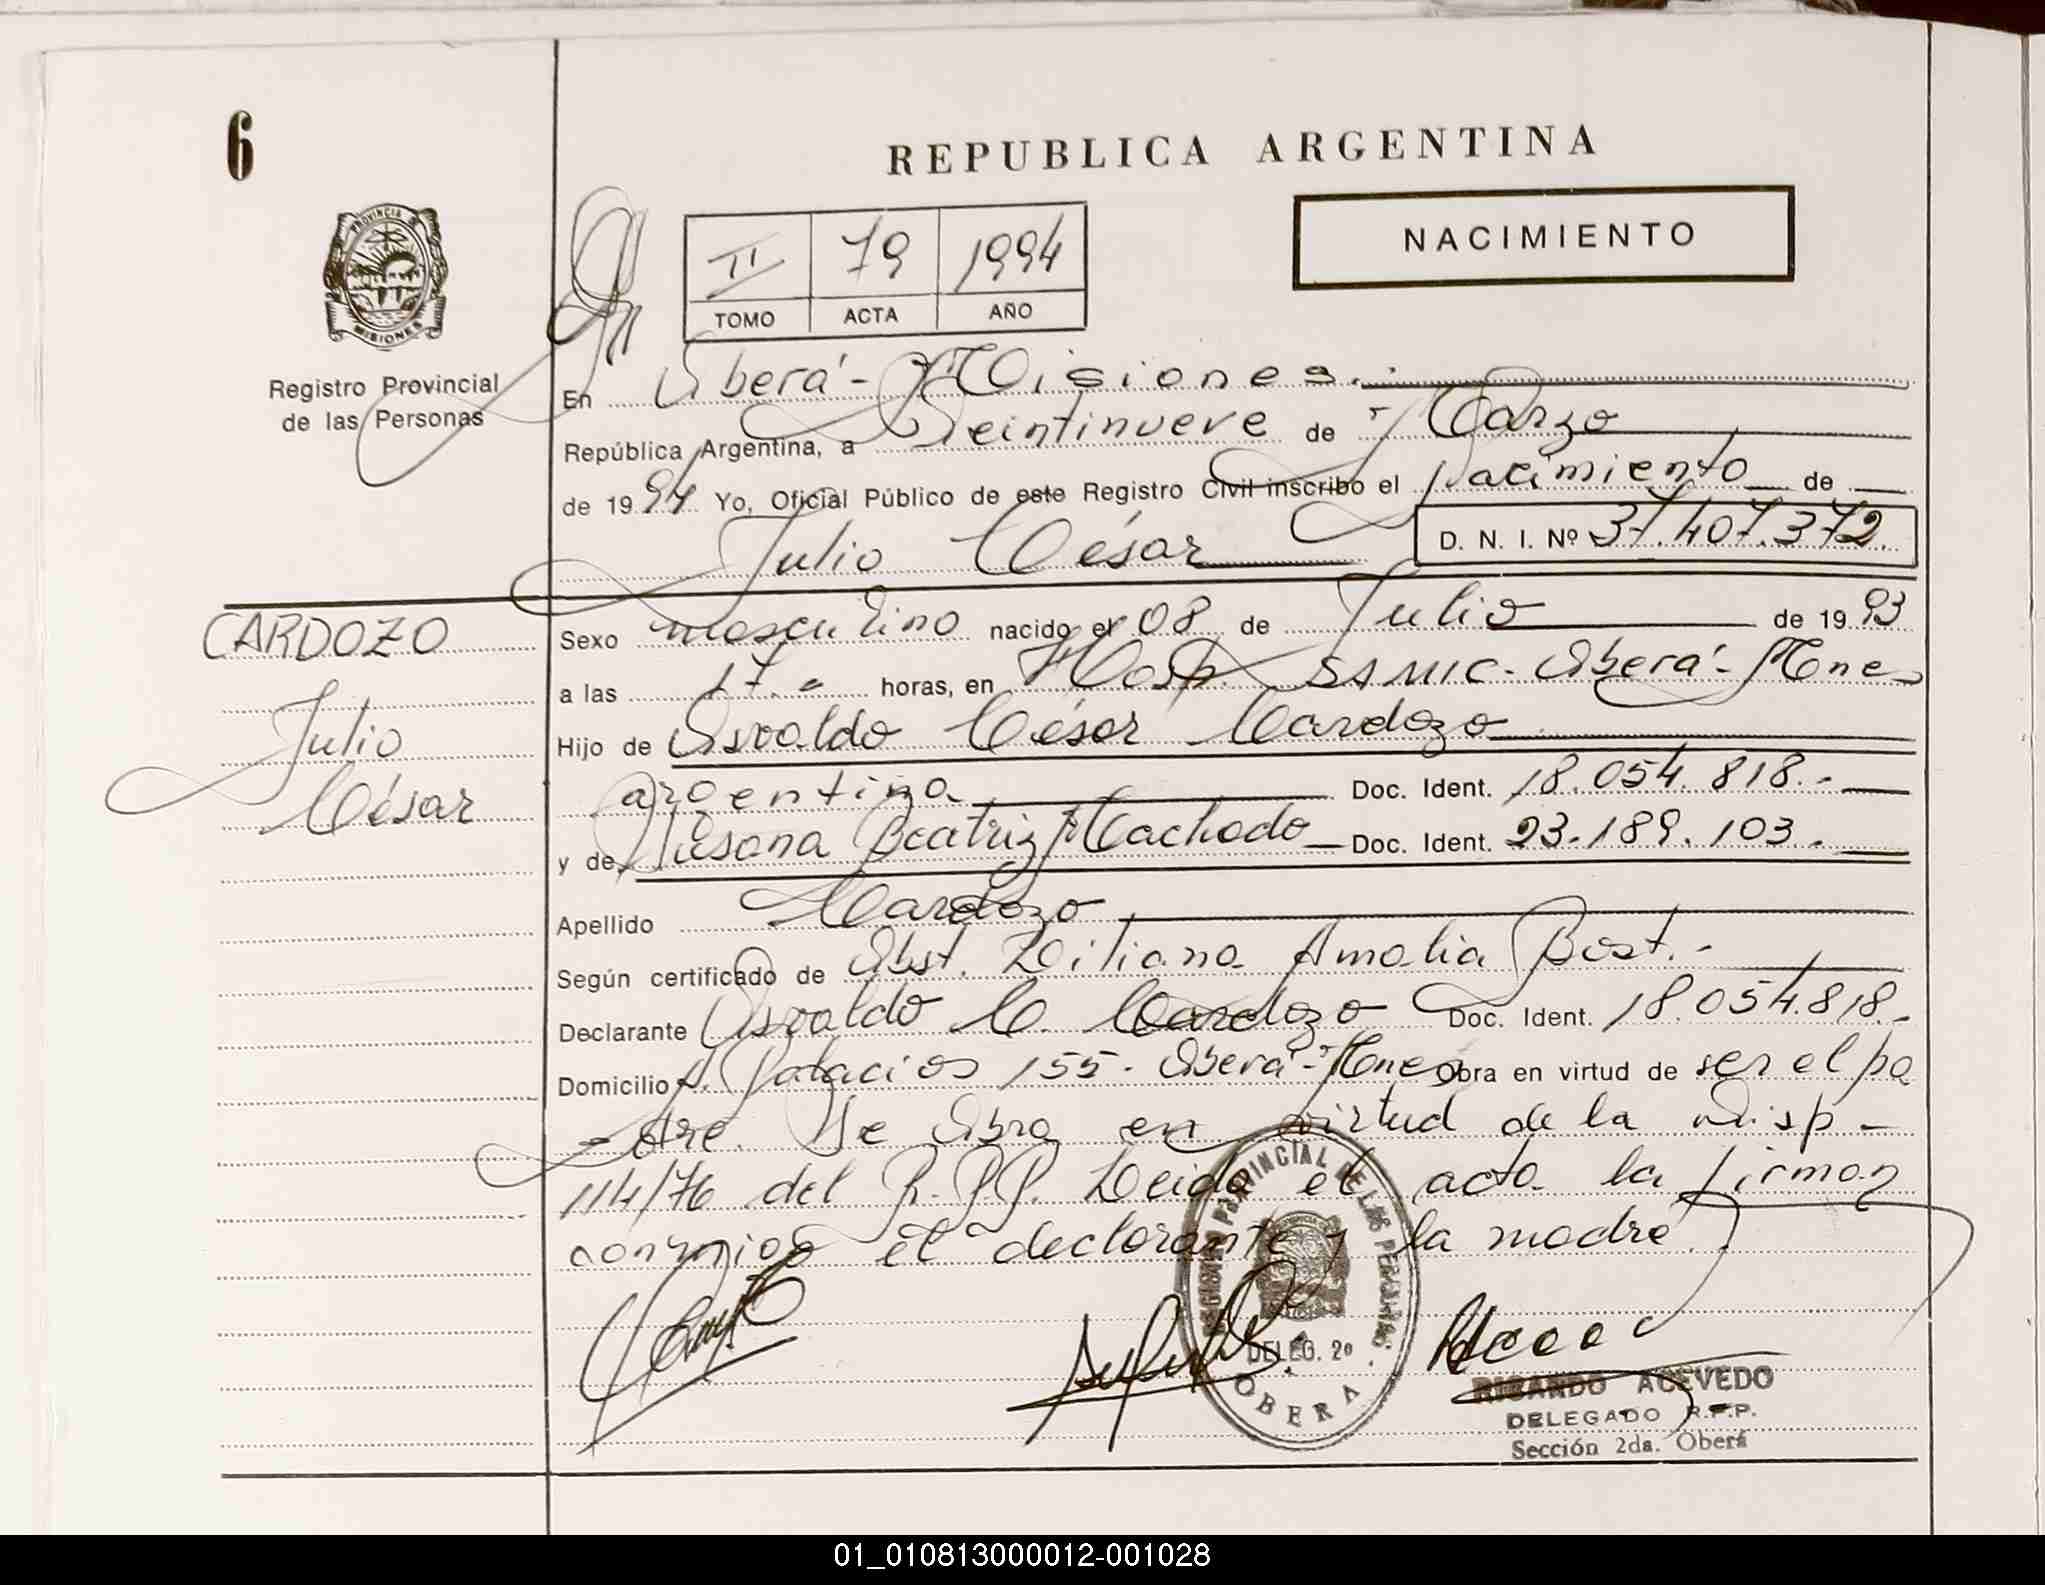 6
REPUBLICA ARGENTINA
NACIMIENTO
PROVINCIA DE
MISIONES
Registro Provincial
de las Personas
II 79 1994
TOMO ACTA AÑO
En Oberá - Misiones.
República Argentina, a Veintinueve de Marzo
de 1994 Yo, Oficial Público de este Registro Civil inscribo el nacimiento de
Julio César D. N. I. Nº 37.407.372.
CARDOZO
Julio
César
Sexo masculino nacido el 08 de Julio de 1993
a las 17.- horas, en Hosp. SAMIC - Oberá - Mnes
Hijo de Osvaldo César Cardozo
argentino Doc. Ident. 18.054.818.-
y de Susana Beatriz Machado Doc. Ident. 23.189.103.-
Apellido Cardozo
Según certificado de Obst. Liliana Amalia Bost.-
Declarante Osvaldo C. Cardozo Doc. Ident. 18.054.818.-
Domicilio A. Palacios 155 - Oberá - Mnes Obra en virtud de ser el pa
- dre. Se labra en virtud de la Disp -
114/76 del R.P.P. Leida el acta la firman
conmigo el declarante y la madre.
REGISTRO PROVINCIAL DE LAS PERSONAS
DELEG. 2º
OBERA
RICARDO ACEVEDO
DELEGADO R.P.P.
Sección 2da. Oberá
01_010813000012-001028